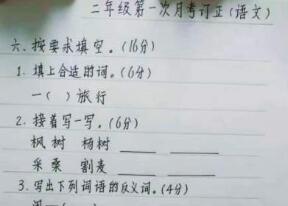 二年级第一次月考订正(语文)
六、按要求填空。(16分)
1.填上合适的词。(6分)
一( )旅行
2.接着写一写。(6分)
枫树 杨树 ____ ____
采桑 割麦 ____ ____
3.写出下列词语的反义词。(4分)